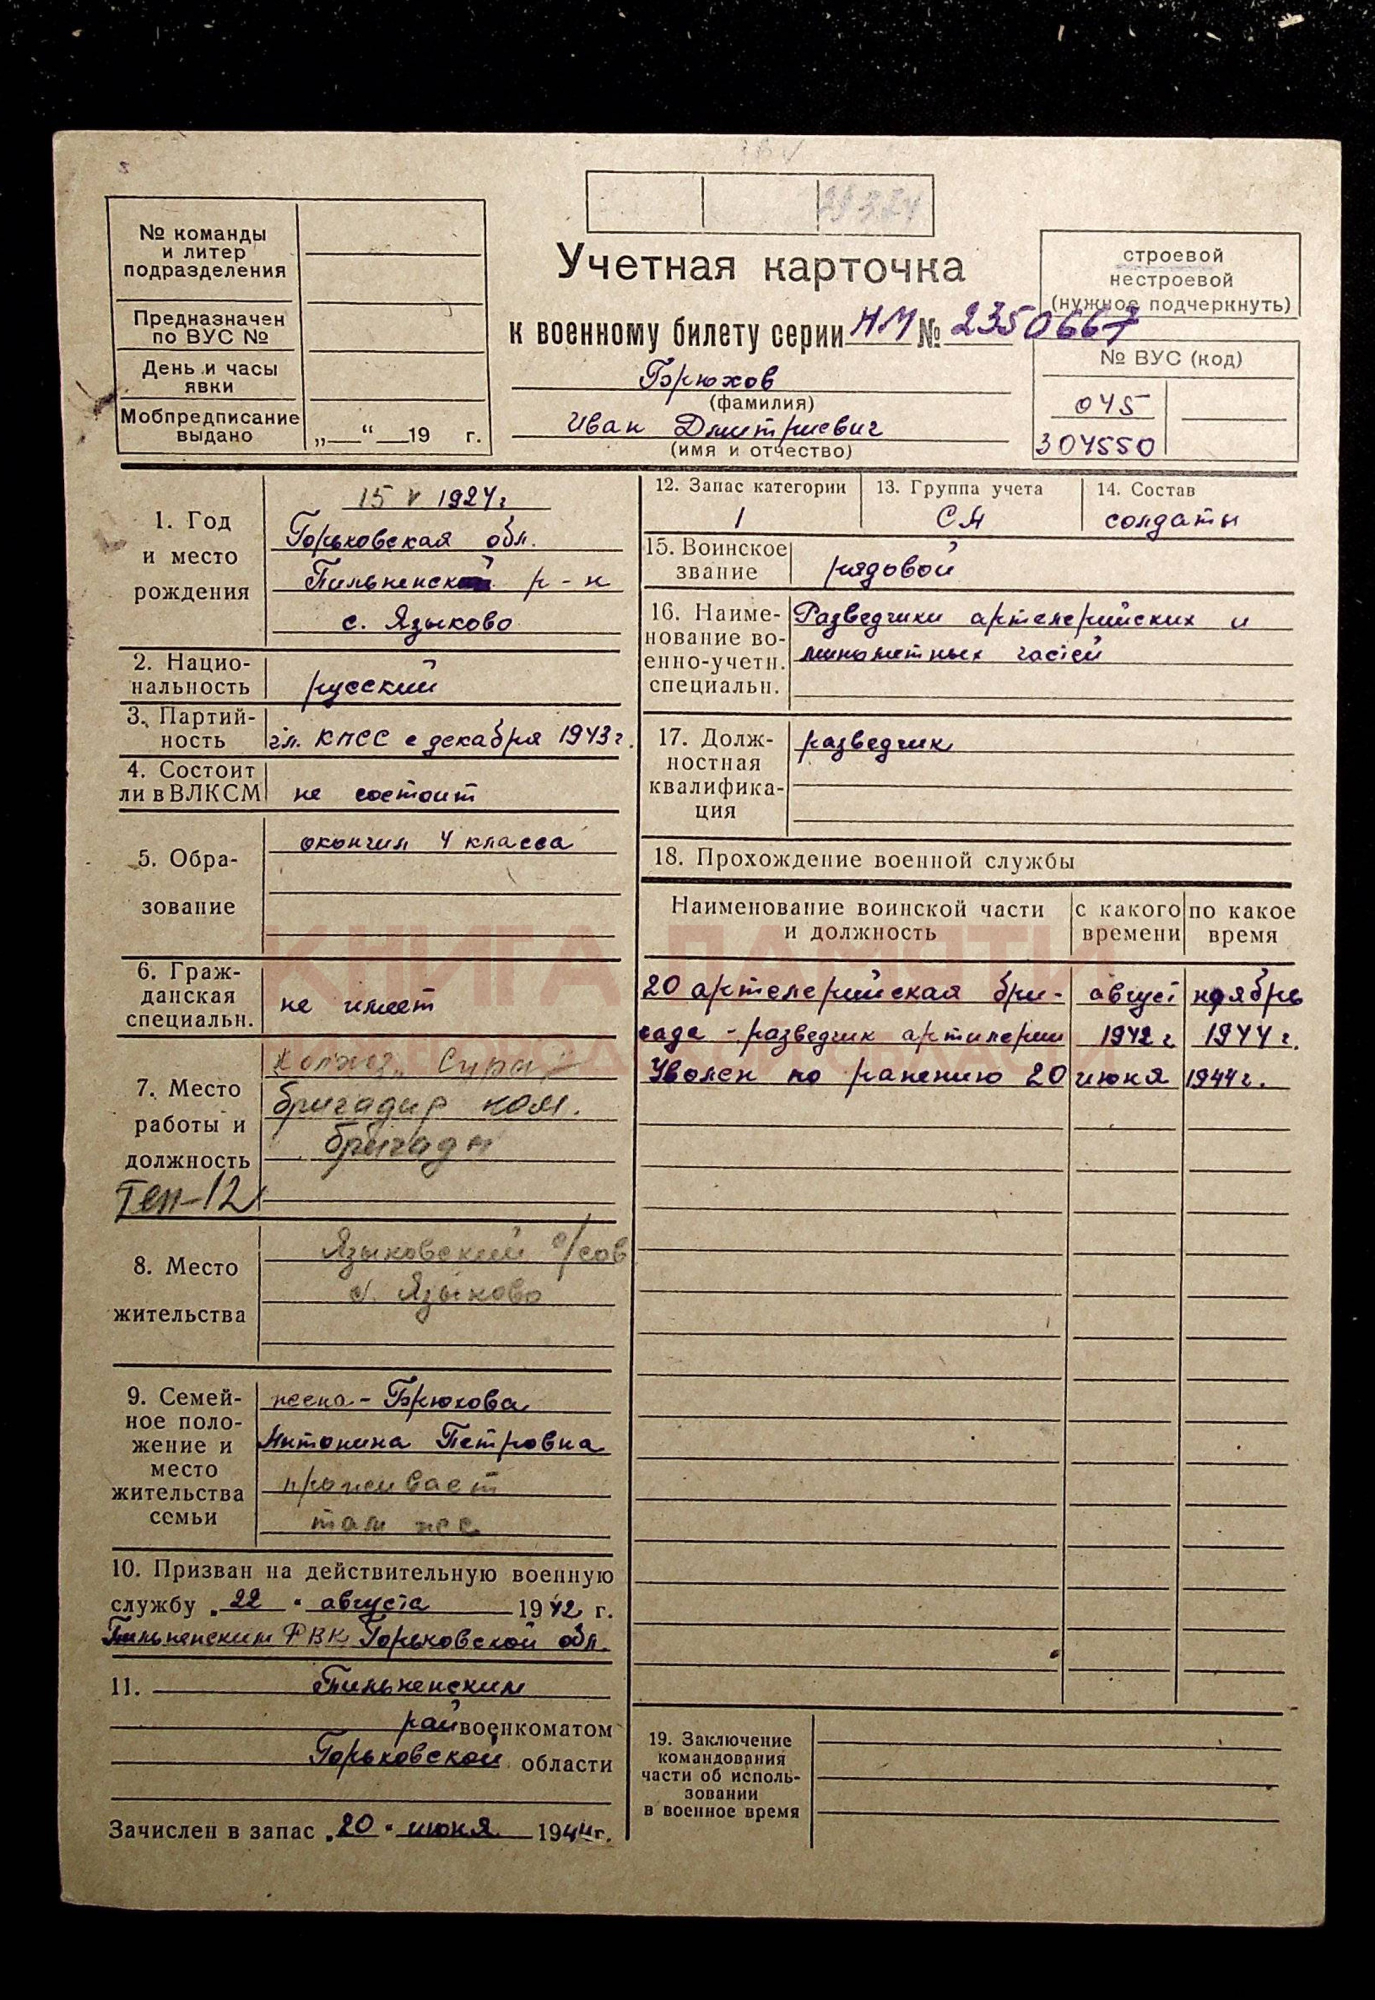 29374
№ команды
и литер
подразделения
Предназначен
по ВУС №
День и часы
явки
Мобпредписание
выдано
„ “ 19 г.
Учетная карточка
к военному билету серии НМ № 2350667
Брюхов
(фамилия)
Иван Дмитриевич
(имя и отчество)
строевой
нестроевой
(нужное подчеркнуть)
№ ВУС (код)
045
304550
1. Год
и место
рождения
15 V 1924 г
Горьковская обл.
Пильненский р-н
с. Языково
2. Нацио-
нальность
русский
3. Партий-
ность
чл. КПСС с декабря 1943 г.
4. Состоит
ли в ВЛКСМ
не состоит
5. Обра-
зование
окончил 4 класса
6. Граж-
данская
специальн.
не имеет
7. Место
работы и
должность
колхоз
бригадир ком.
бригады
Тел-12
8. Место
жительства
Языковский с/сов
с. Языково
9. Семей-
ное поло-
жение и
место
жительства
семьи
жена - Брюхова
Антонина Петровна
проживает
там же
10. Призван на действительную военную
службу „22“ августа 1942 г.
Пильненским РВК Горьковской обл.
11. Пильненским
райвоенкоматом
Горьковской области
Зачислен в запас „20“ июня 1944 г.
12. Запас категории
1
13. Группа учета
СА
14. Состав
солдаты
15. Воинское
звание
рядовой
16. Наиме-
нование во-
енно-учетн.
специальн.
Разведчики артелерийских и
минометных частей
17. Долж-
ностная
квалифика-
ция
разведчик
18. Прохождение военной службы
Наименование воинской части
и должность
с какого
времени
по какое
время
20 артелерийская бри- август ноябрь
гада - разведчик артилерии 1942 г 1944 г.
Уволен по ранению 20 июня 1944 г.
19. Заключение
командования
части об исполь-
зовании
в военное время
КНИГА ПАМЯТИ
НИЖЕГОРОДСКОЙ ОБЛАСТИ